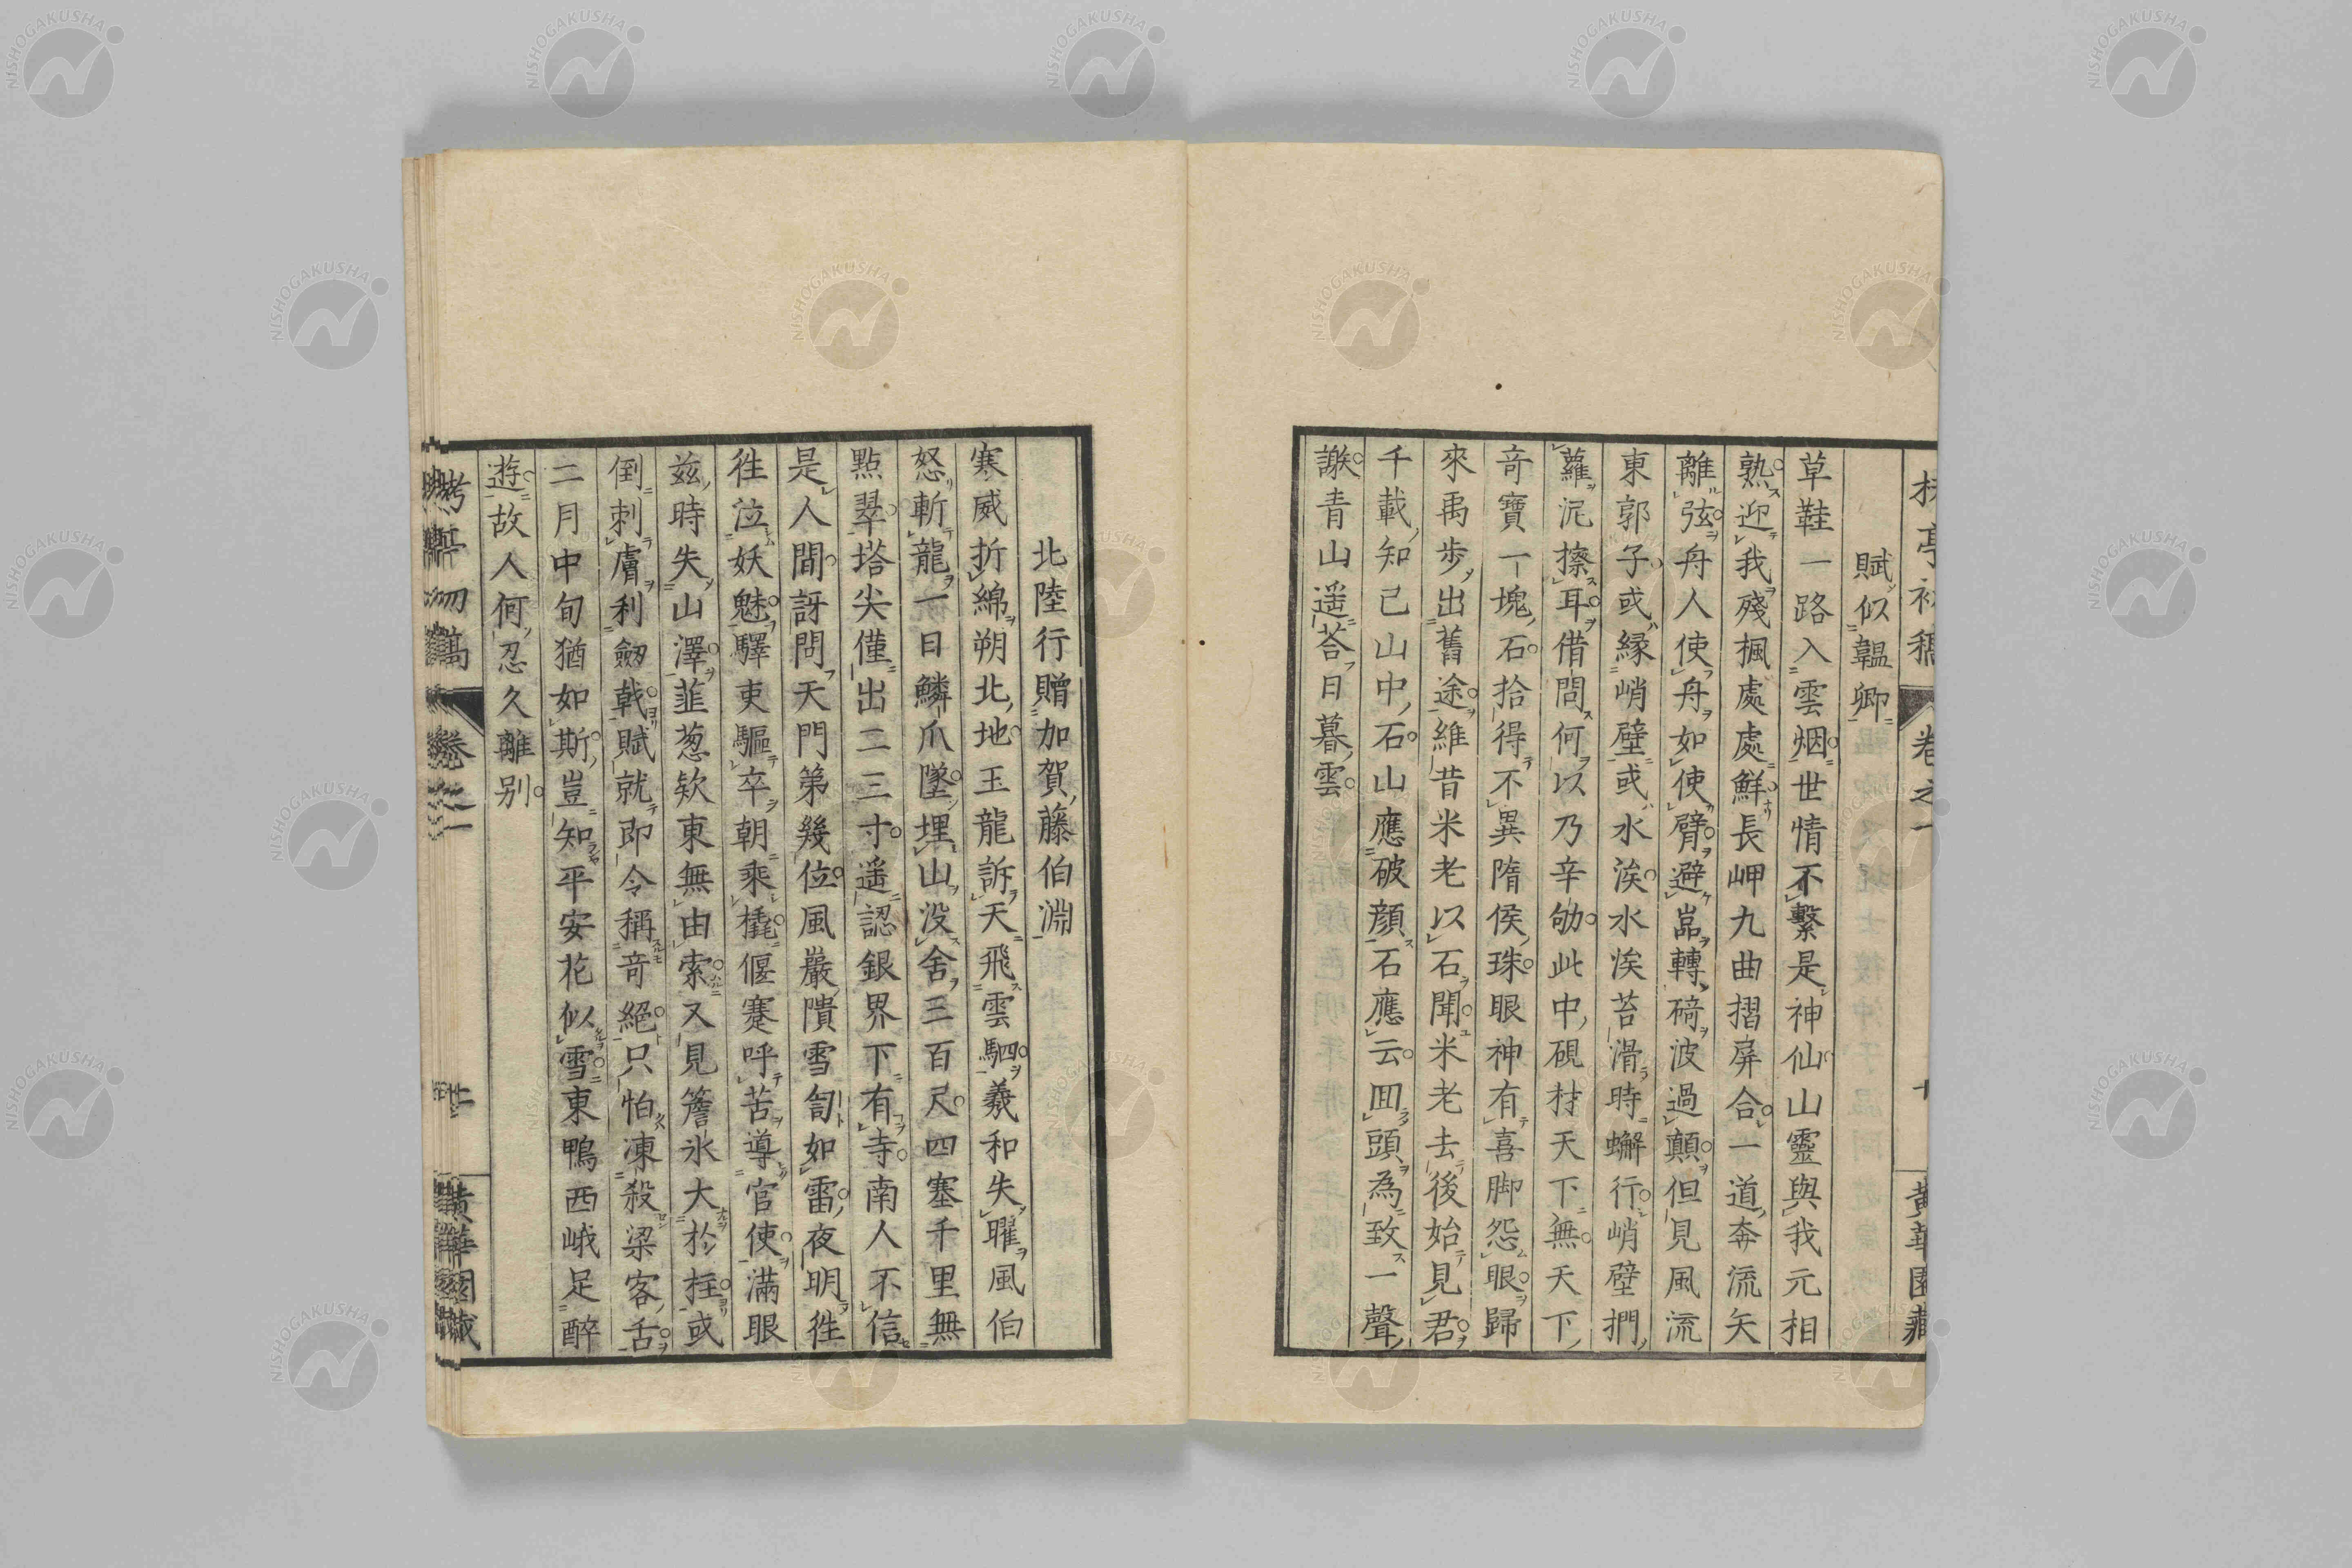 賦似韞卿
草鞋一路入雲烟世情不繫是神仙山靈與我元相
熟迎我殘楓處處鮮長岬九曲摺屏合一道奔流矢
離弦舟人使舟如使臂避嵓轉碕波過顛但見風流
東郭子或緣峭壁或水涘水涘苔滑時蠏行峭壁捫
蘿泥擦耳借問何以乃辛劬此中硯材天下無天下
奇寶一塊石拾得不異隋侯珠眼神有喜脚怨眼歸
來禹步出舊途維昔米老以石聞米老去後始見君
千載知己山中石山應破顔石應云囬頭為致一聲
謝青山遥荅日暮雲
北陸行贈加賀藤伯淵
寒威折綿朔北地玉龍訴天飛雲駟羲和失曜風伯
怒斬龍一日鱗爪墜埋山没舍三百尺四塞千里無
點翠塔尖僅出二三寸遥認銀界下有寺南人不信
是人間訝問天門第幾位風巖隤雪訇如雷夜明徃
徃泣妖魅驛吏驅卒朝乘橇偃蹇呼苦導官使滿眼
茲時失山澤韮葱欵東無由索又見簷氷大於柱或
倒刺膚利劒戟賦就即令稱奇絕只怕凍殺梁客舌
二月中旬猶如斯豈知平安花似雪東鴨西峨足醉
遊故人何忍久離别
卷之一
黃華園藏